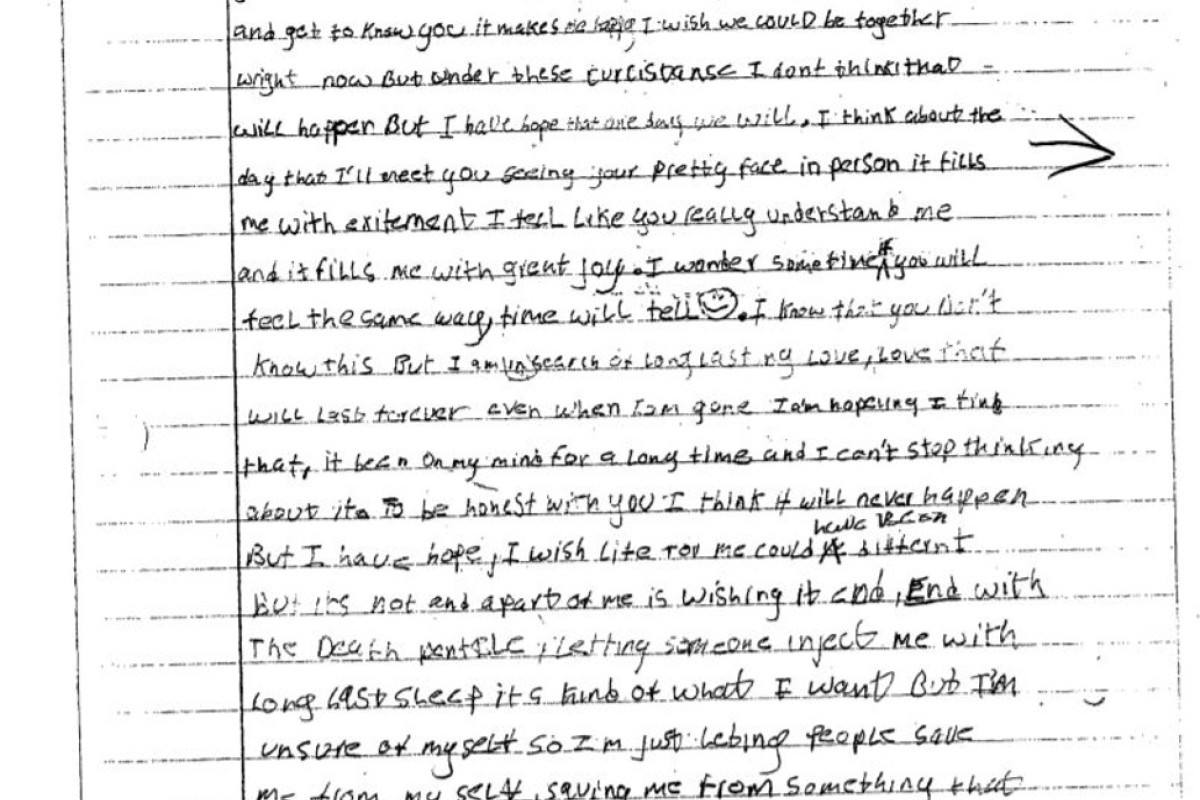 and get to know you it makes me happy I wish we could be together
wright now But under these curcistanse I dont think that
will happen But I have hope that one day we will. I think about the
day that I'll meet you seeing your pretty face in person it fills
me with exitement I feel like you really understand me
and it fills me with great joy. I wonder sometime if you will
feel the same way, time will tell ☺. I know that you don't
know this But I am in search of long lasting love, love that
will last forever even when I am gone I am hopeing I find
that, it been on my mind for a long time and I can't stop thinking
about it. To be honest with you I think it will never happen
But I have hope, I wish life for me could have been differnt
But its not and apart of me is wishing it end, End with
The Death , letting someone inject me with
long last sleep its kind of what I want But I'm
unsure of myself so I'm just leting people save
me from my self, saving me from something that